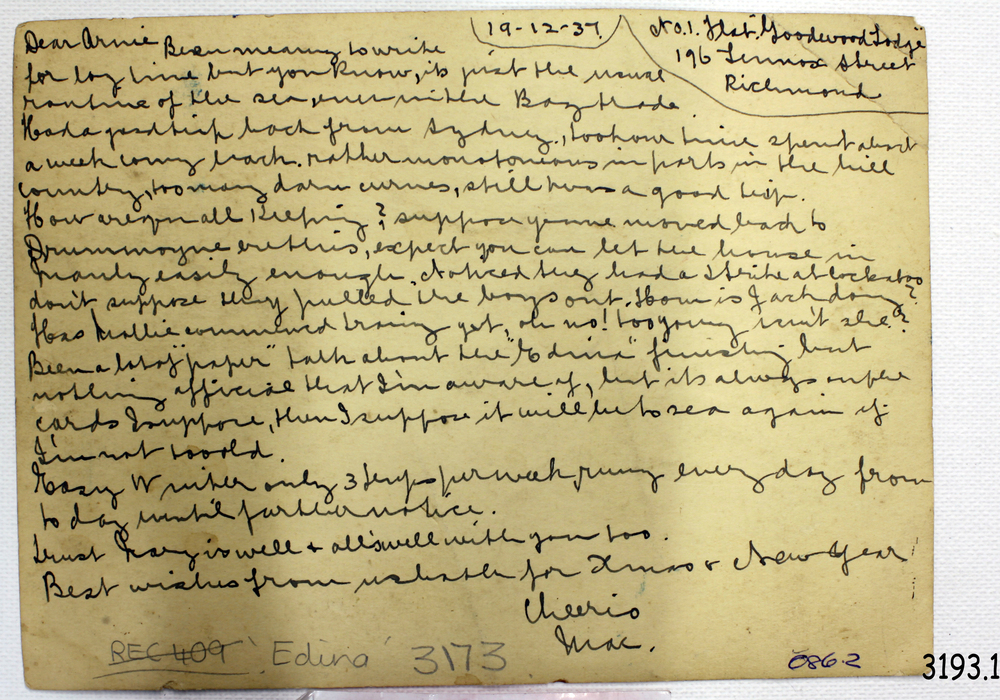 19-12-37
No.1. Flat, Goodwood Lodge
196 Lennox Street
Richmond
Dear Arnie Been meaning to write
for long time but you know, its just the usual
routine of the sea, even in the Bay trade
Had a good trip back from Sydney., took our time spent about
a week coming back. rather monotonous in parts in the hill
country, too many darn curves, still twas a good trip.
How are you all keeping? suppose you've moved back to
Drummoyne ere this, expect you can let the house in
Manly easily enough. Noticed they had a strike at Cockatoo
don't suppose they pulled the boys out. How is Jack doing?
Has Mollie commenced training yet, oh no! too young isn't she?
Been a lot of "paper" talk about the "Edina" finishing but
nothing official that I'm aware of, but its always on the
cards I suppose, then I suppose it will be to sea again if
I'm not too old.
Easy Winter only 3 trips per week, runing every day from
to day until further notice.
trust Mary is well + all's well with you too.
Best wishes from us both for Xmas & New Year
Cheerio
Mac.
REC 409 'Edina' 3173
086.2
3193.1